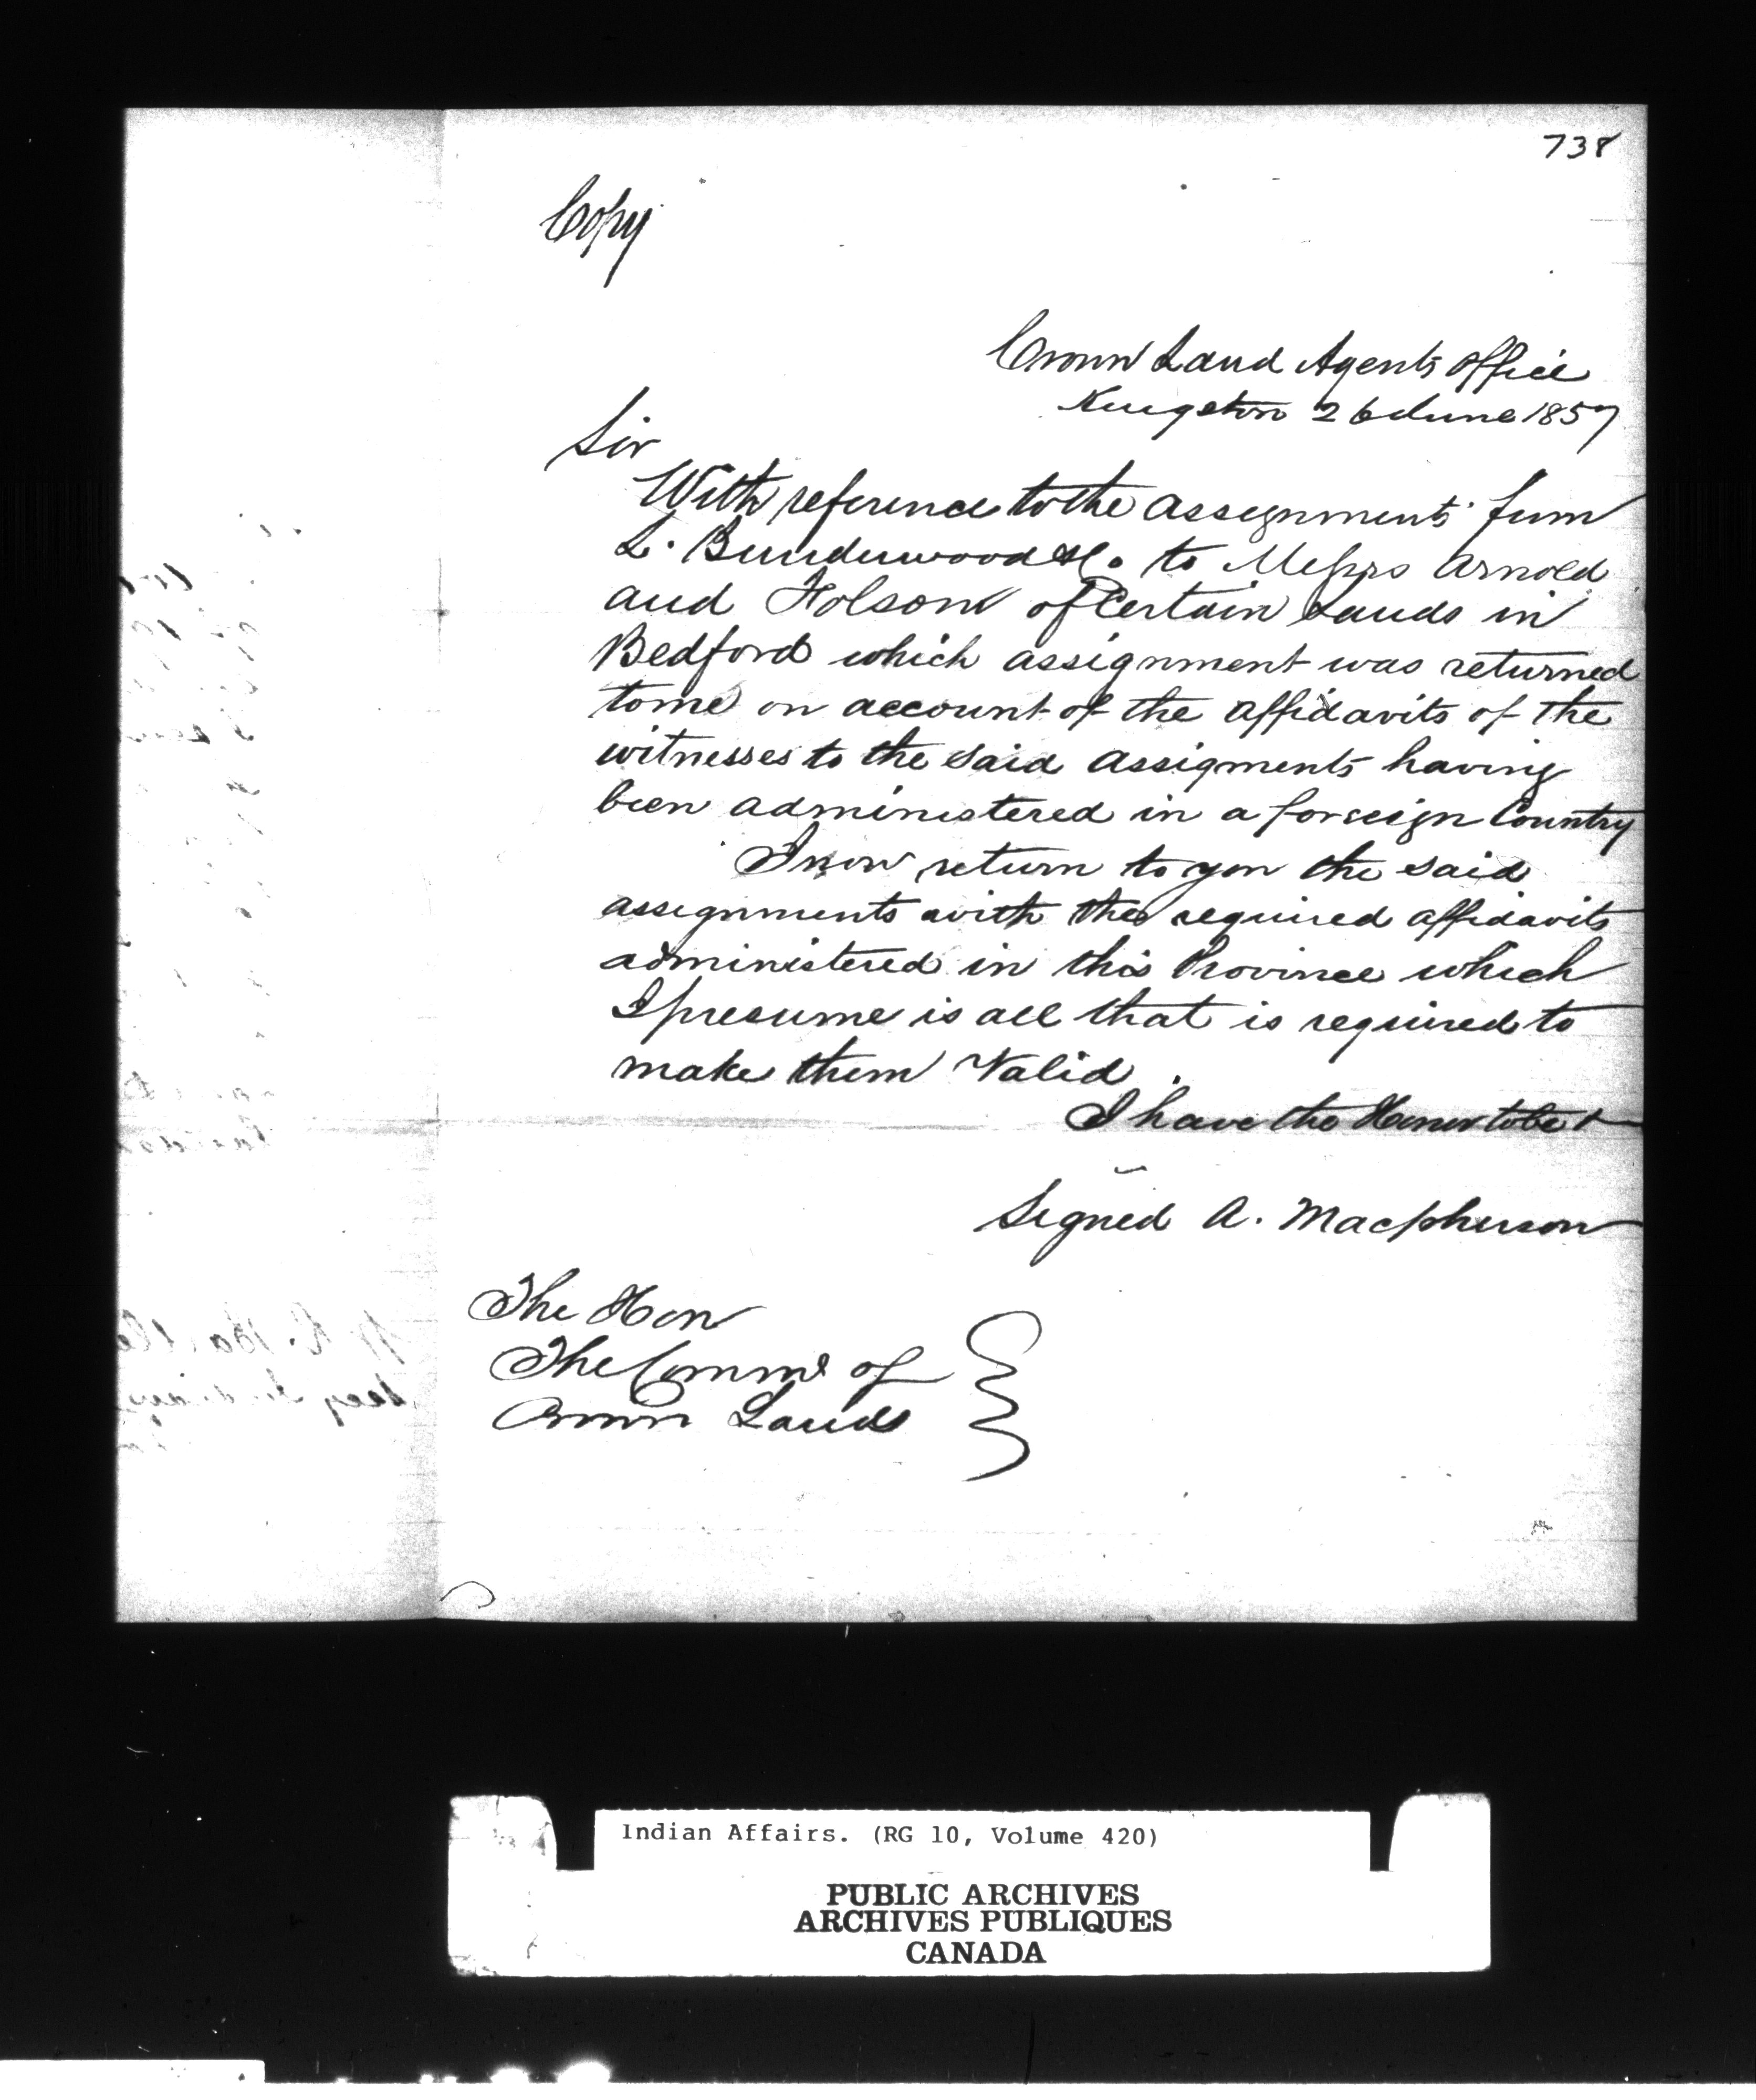 738
Copy
Crown Land Agents Office
Kingston 26 June 1857
Sir
With reference to the assignments from
L. to Messrs Arnold
and Folsom of Certain Lands in
Bedford which assignment was returned
to me on account of the affidavits of the
witnesses to the said assigments having
been administered in a foreign Country
I now return to you the said
assignments with the required affidavits
administered in this Province which
I presume is all that is required to
make them Valid.
I have the Honor to be &
Signed A. Macpherson
The Hon
The Commr of
Crown Lands
Indian Affairs. (RG 10, Volume 420)
PUBLIC ARCHIVES
ARCHIVES PUBLIQUES
CANADA